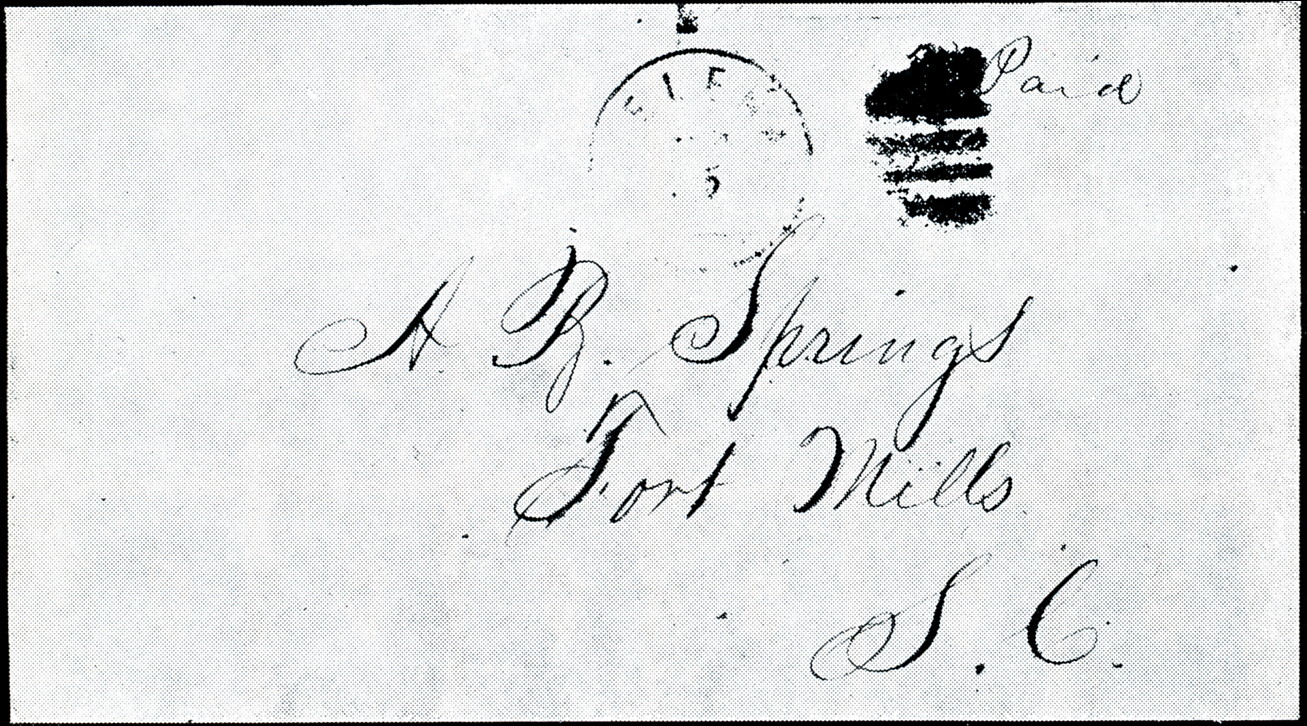 Paid
5
A. B. Springs
Fort Mills
S. C.